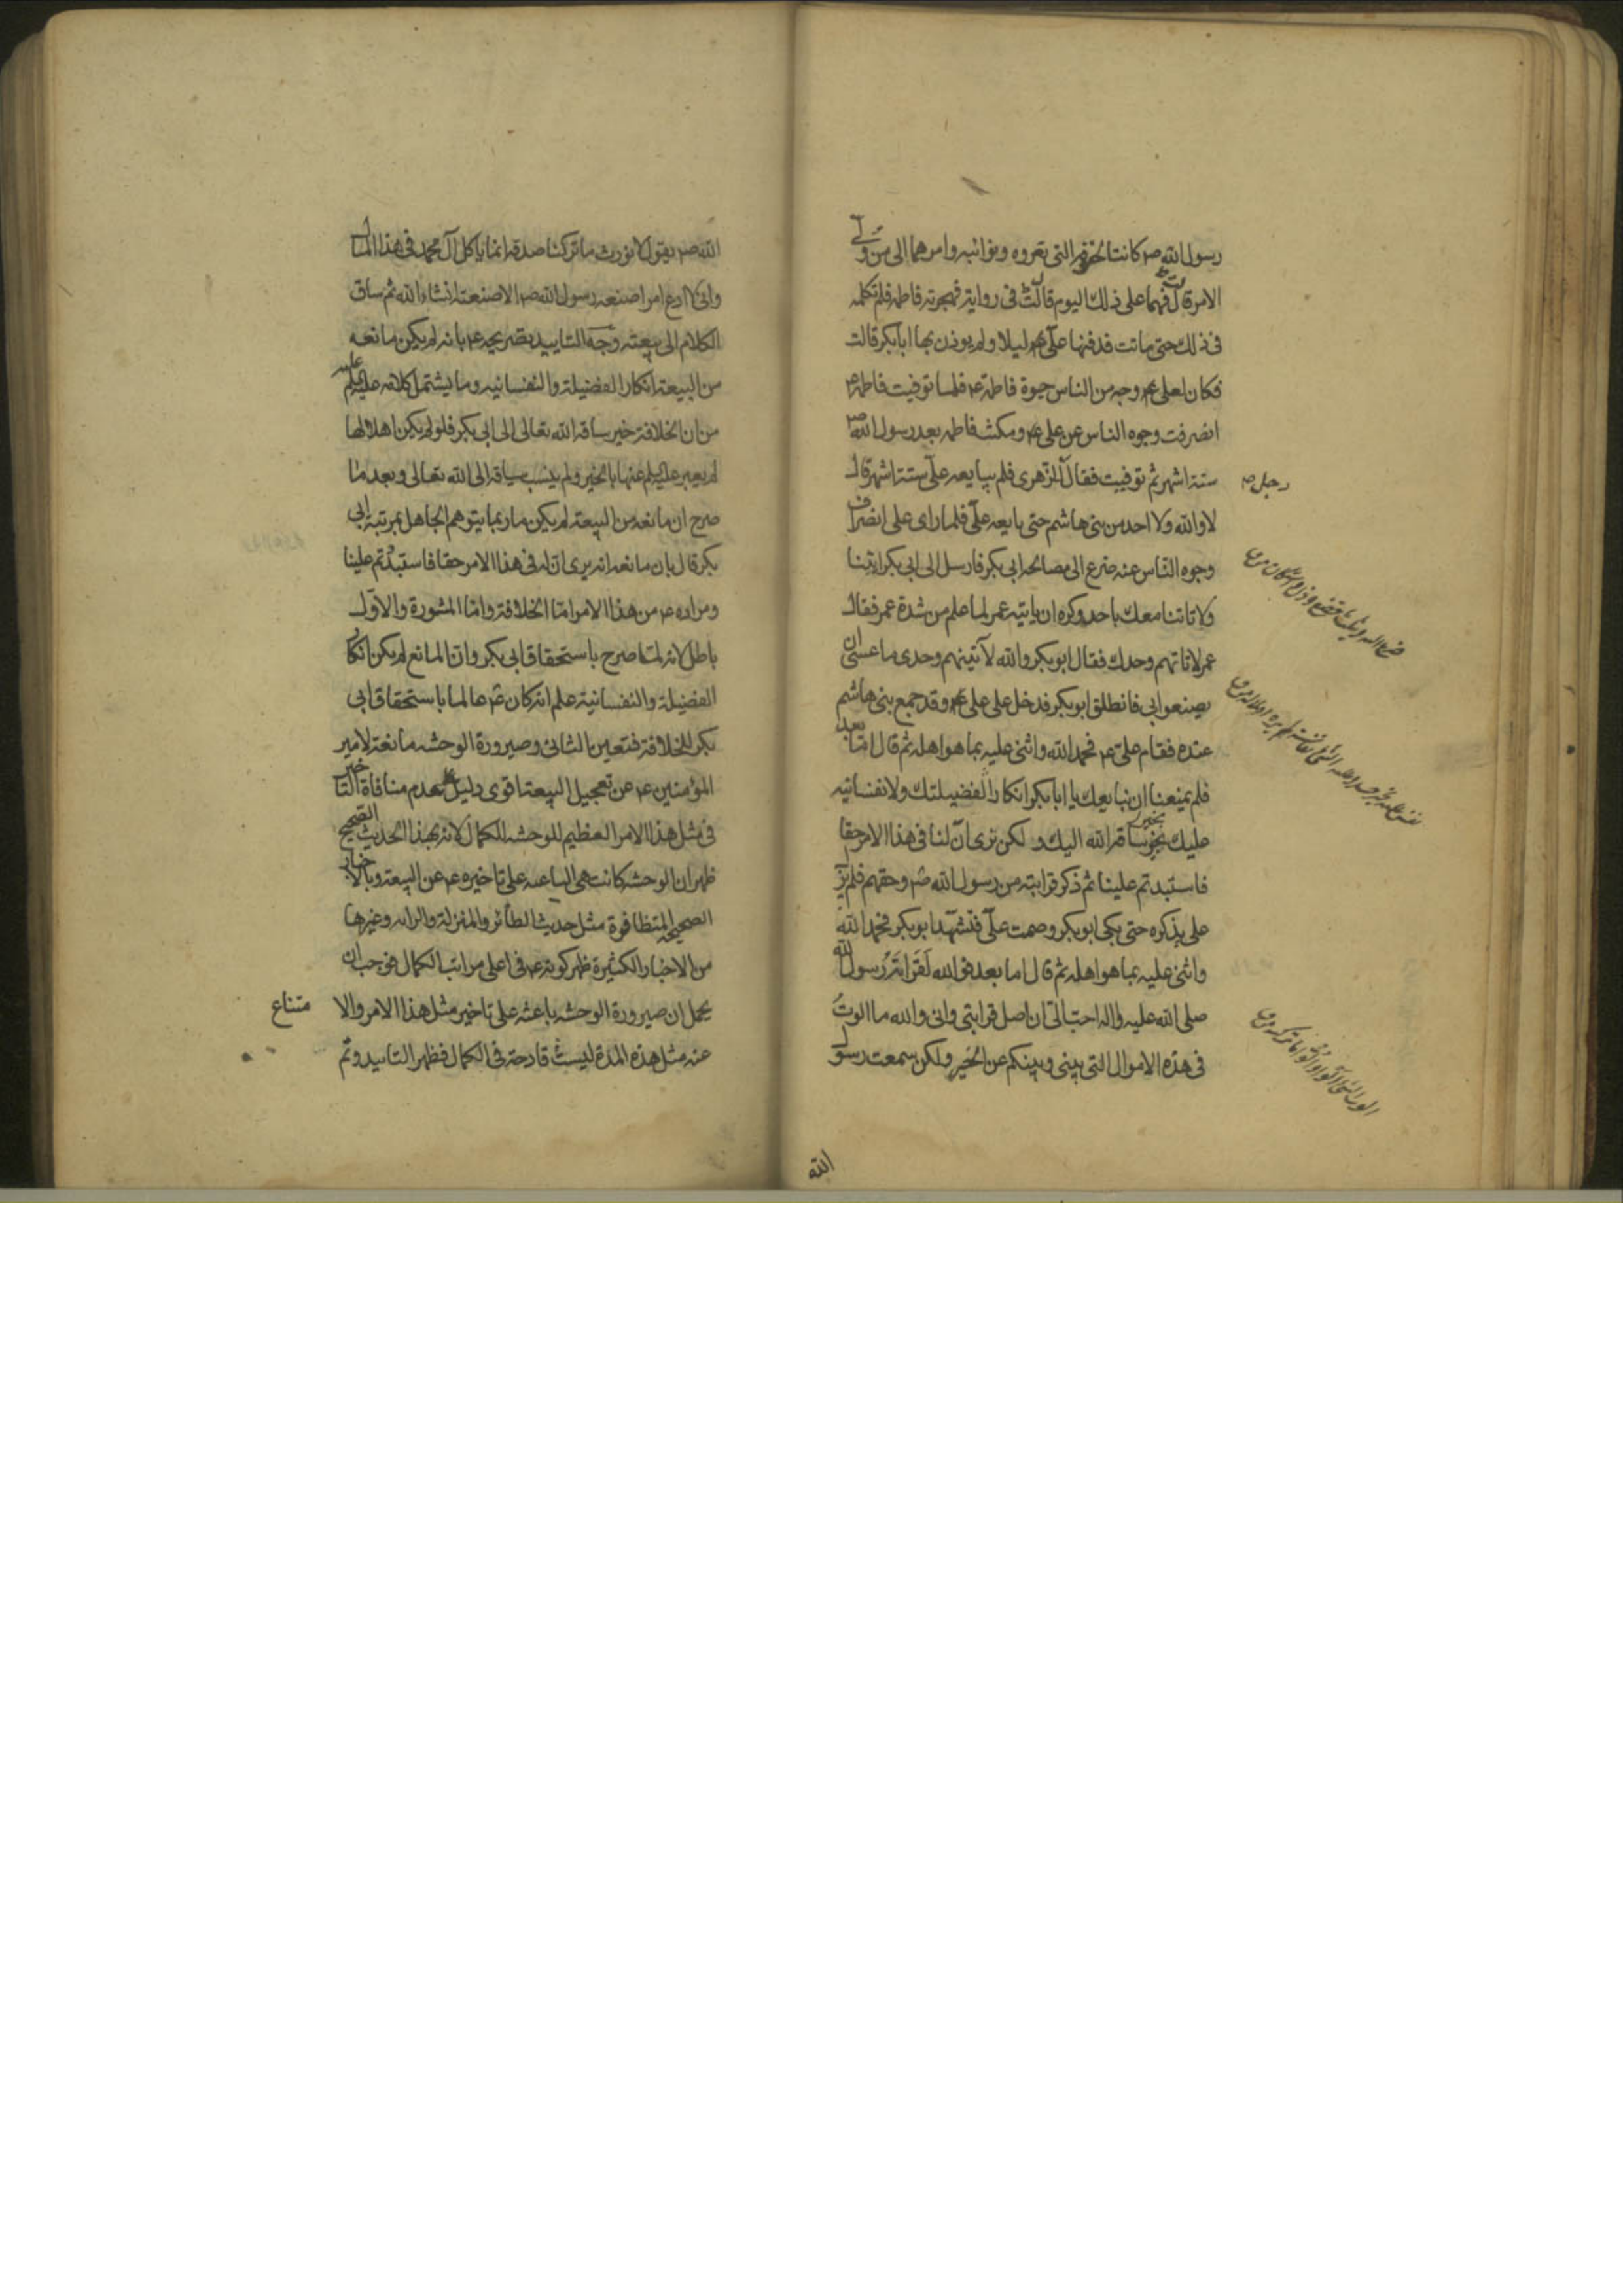 رسول الله ص كانتا لحقوقه التى تعروه ونوائبه وامرهما الى من ولى
الامر قال فهما على ذلك اليوم قالت فى رواية فهجرته فاطمة فلم تكلمه
فى ذلك حتى ماتت فدفنها على ع ليلا ولم يوذن بها ابا بكر قالت
فكان لعلى ع وجه من الناس حيوة فاطمة ع فلما توفيت فاطمة ع
انصرفت وجوه الناس عن على ع ومكثت فاطمه بعد رسول الله ص
ستة اشهر ثم توفيت فقال للزهرى فلم يبايعه على ستة اشهر قال
رجل ص
لا والله ولا احد من بنى هاشم حتى بايعه على فلما راى على انصراف
وجوه الناس عنه ضرع الى مصالحه ابى بكر فارسل الى ابى بكر ايتنا
ولا تاتنا معك باحد وكره ان ياتيه عمر لما علم من شدة عمر فقال
عمر لا تاتهم وحدك فقال ابو بكر والله لآتينهم وحدى ما عسى ان
يصنعوا بى فانطلق ابو بكر فدخل على على ع وقد جمع بنى هاشم
عنده فقام على ع فحمد الله واثنى عليه بما هو اهله ثم قال اما بعد
فلم يمنعنا ان نبايعك يا ابا بكر انكارا لفضيلتك ولا نفسانيه
عليك بخير ساقه الله اليك ولكن نرى ان لنا فى هذا الامر حقا
فاستبدتم علينا ثم ذكر قرابته من رسول الله ص وحقهم فلم يز
على يذكره حتى بكى ابو بكر وصمت على فتشهد ابو بكر فحمد الله
واثنى عليه بما هو اهله ثم قال اما بعد فو الله لقرابة رسول الله
صلى الله عليه واله احب الى ان اصل قرابتى وانى والله ما الوت
فى هذه الاموال التى بينى وبينكم عن الخير ولكن سمعت رسول
الله
الله ص يقول لا نورث ما تركنا صدقة انما ياكل آل محمد فى هذا المال
وانى لا ادع امرا صنعه رسول الله ص الا صنعته انشاء الله ثم ساق
الكلام الى بيعته وجه التاييد تصريحه ع بانه لم يكن مانعه
من البيعة انكار الفضيلة والنفسانيه وما يشتمل كلامه عليه
من ان الخلافة خير ساقه الله تعالى الى ابى بكر فلو لم يكن اهلا لها
لم يعبر عليلم عنها بالخير ولم ينسب سياقه الى الله تعالى وبعد ما
صرح ان مانعه من البيعة لم يكن ما ربما يتوهم الجاهل بمرتبة ابى
بكر قال بان مانعه انه يرى ان له فى هذا الامر حقا فاستبدتم علينا
ومراده ع من هذا الامر اما الخلافة واما المشورة والاول
باطل لانه لما صرح باستحقاق ابى بكر وان المانع لم يكن انكا
الفضيلة والنفسانية علم انه كان ع عالما باستحقاق ابى
بكر للخلافة فتعين الثانى وصيرورة الوحشه مانعة لامير
المؤمنين ع عن تعجيل البيعة اقوى دليل بعدم منافاة التاخير
فى مثل هذا الامر العظيم للوحشه للكمال لانه بهذا الحديث الصحيح
ظهر ان الوحشه كانت هى الباعثه على تاخيره ع عن البيعة وبالاخبار
الصحيحه المتظافرة مثل حديث الطائر والمنزلة والرايه وغيرها
من الاخبار الكثيرة ظهر كونه ع فى اعلى مراتب الكمال فوجب ان
يحمل ان صيرورة الوحشه باعثه على تاخير مثل هذا الامر والا
متناع
عنه مثل هذه المدة ليست قادحة فى الكمال فظهر التاييد وتم